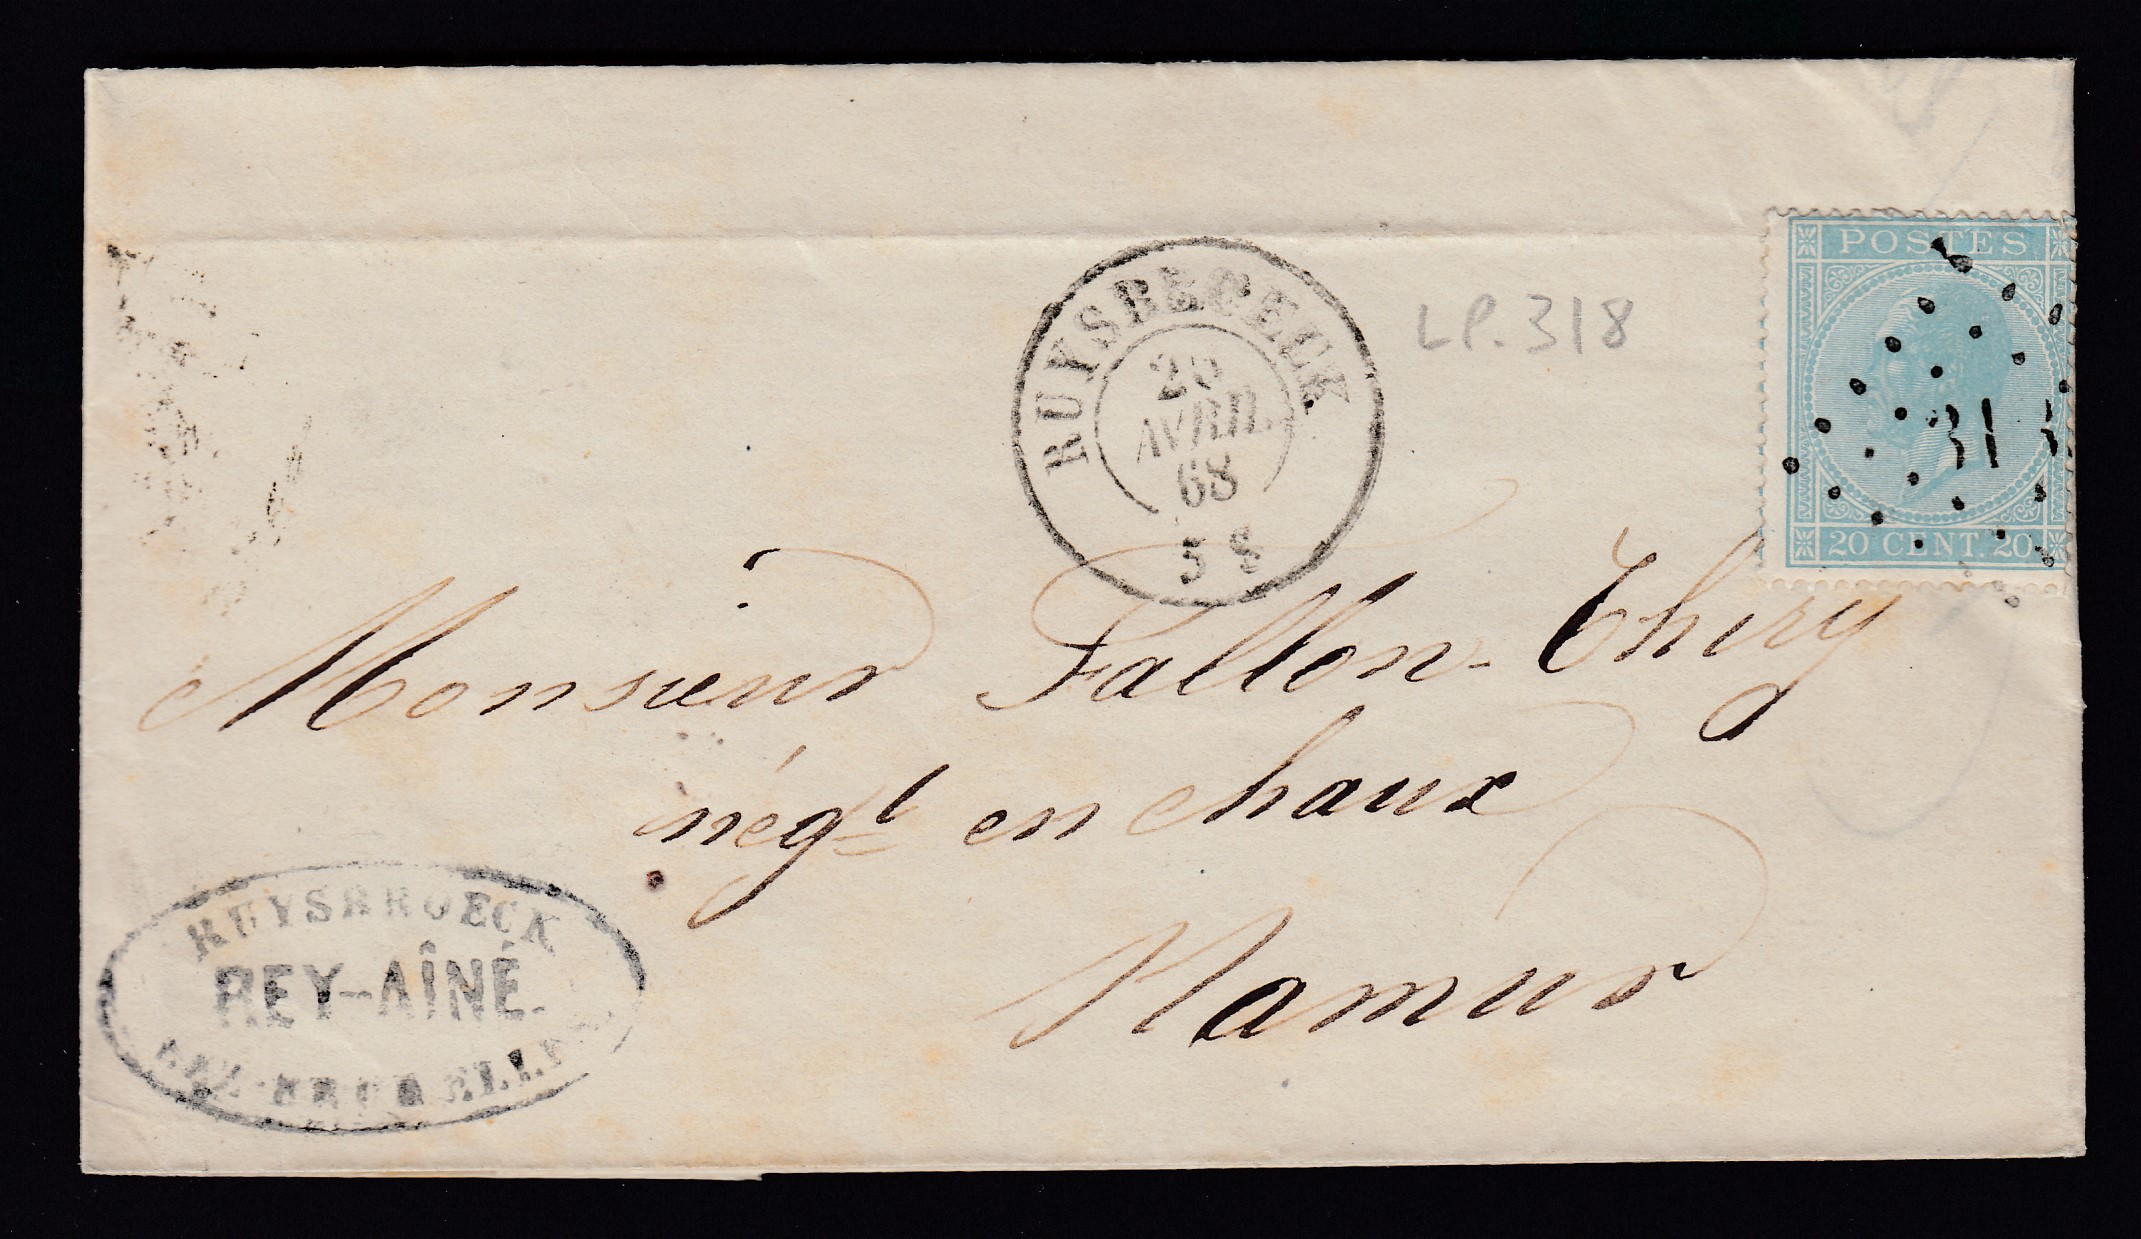 POSTES
20 CENT. 20
RUYSBRCELK
25
AVRIL
68
5 S
LP. 318
Monsieur Fallon-Thiry
négt en chaux
Namur
RUYSBROECK
REY-AÎNÉ.
LEZ-BRUXELLES